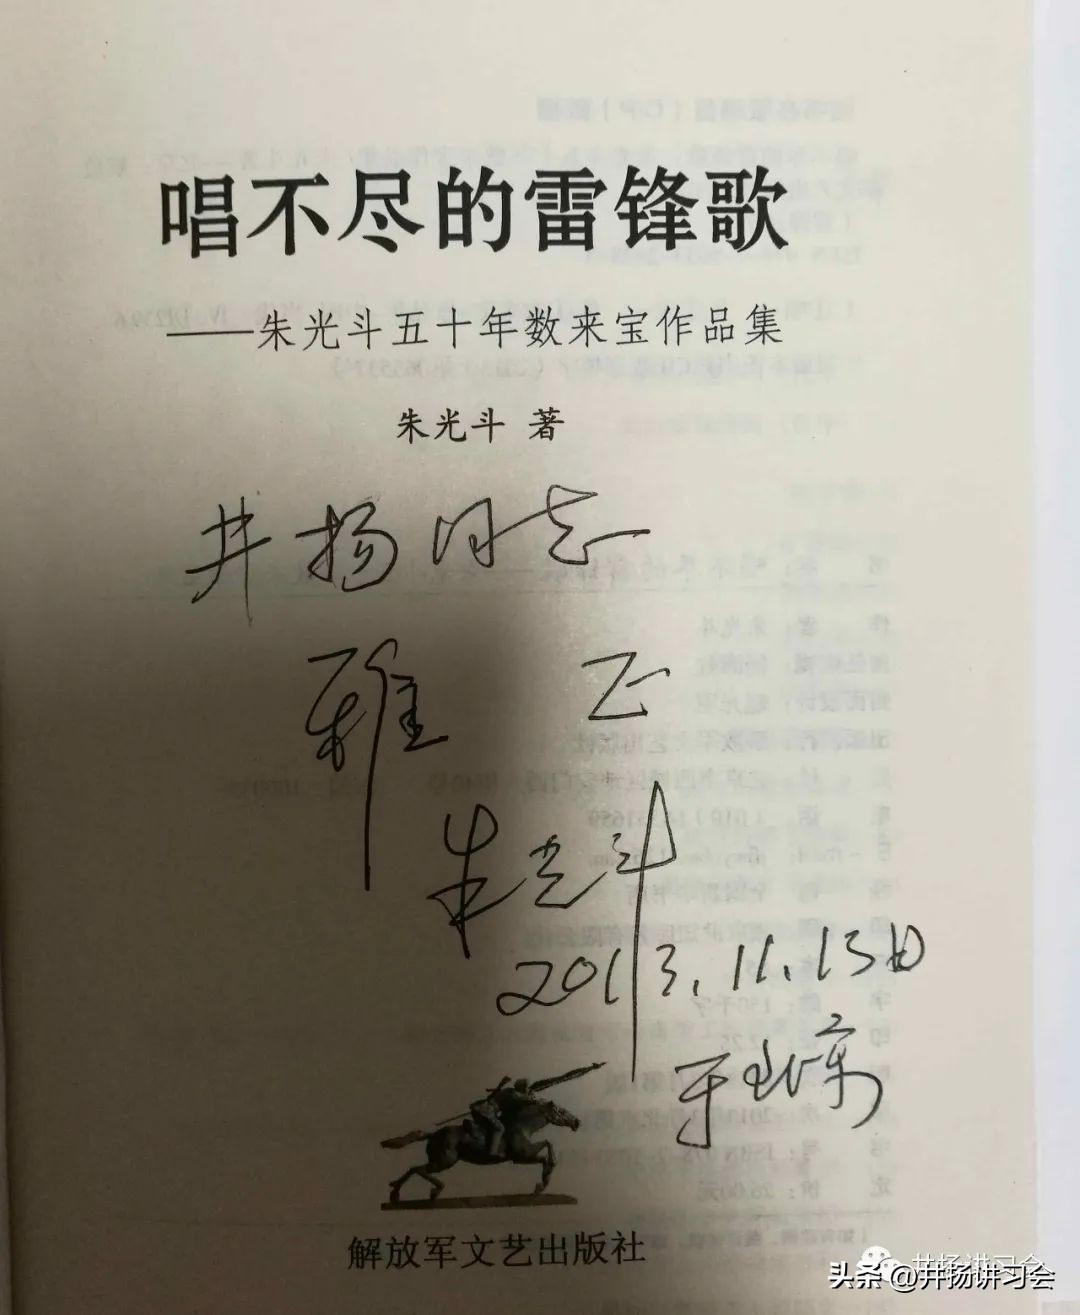 唱不尽的雷锋歌
——朱光斗五十年数来宝作品集
朱光斗 著
井扬同志
雅正
朱光斗
2013.11.13日
于北京
解放军文艺出版社
井扬讲习会
头条 @井扬讲习会